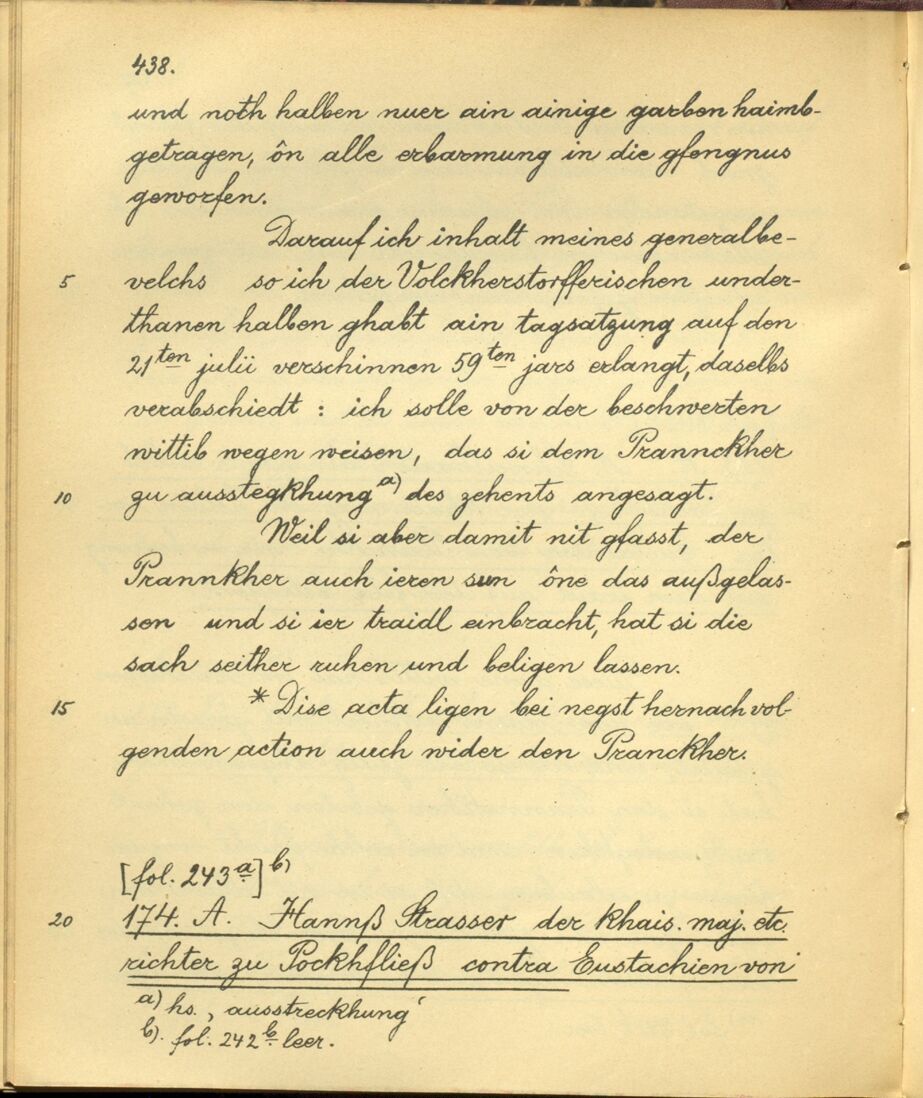 438.
und noth halben nuer ain ainige garben haimb-
getragen, ôn alle erbarmung in die gfengnus
geworfen.
Darauf ich inhalt meines generalbe-
5 velchs so ich der Volckherstorfferischen under-
thanen halben ghabt ain tagsatzung auf den
21ten julii verschinnen 59ten jars erlangt, daselbs
verabschiedt : ich solle von der beschwerten
wittib wegen weisen, das si dem Prannckher
10 zu ausstegkhung a) des zehents angesagt.
Weil si aber damit nit gfasst, der
Prannkher auch ieren sun ône das außgelas-
sen und si ier traidl einbracht, hat si die
sach seither ruhen und beligen lassen.
15 * Dise acta ligen bei negst hernach vol-
genden action auch wider den Pranckher.
[fol. 243a] b)
20 174. A. Hannß Strasser der khais. maj. etc.
richter zu Pockhfließ contra Eustachien von
a) hs. ‚ausstreckhung‘
b). fol. 242b leer.